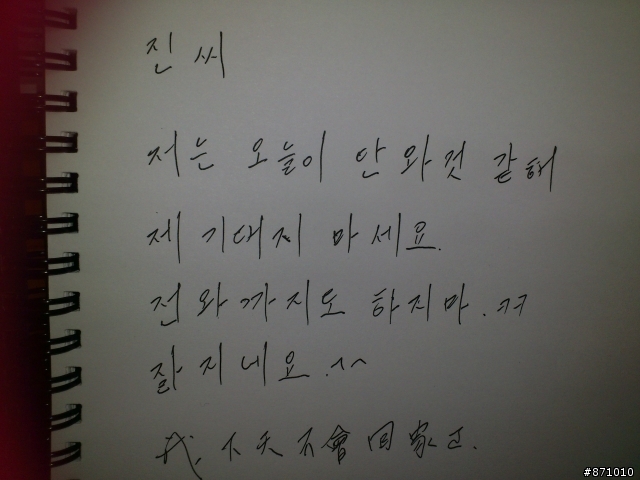 진 씨
저는 오늘이 안 와것 같해
제 기대지 마세요.
전와까지도 하지마.ㅋㅋ
잘 지네요.^^
我, 下天不會回家己.
#871010